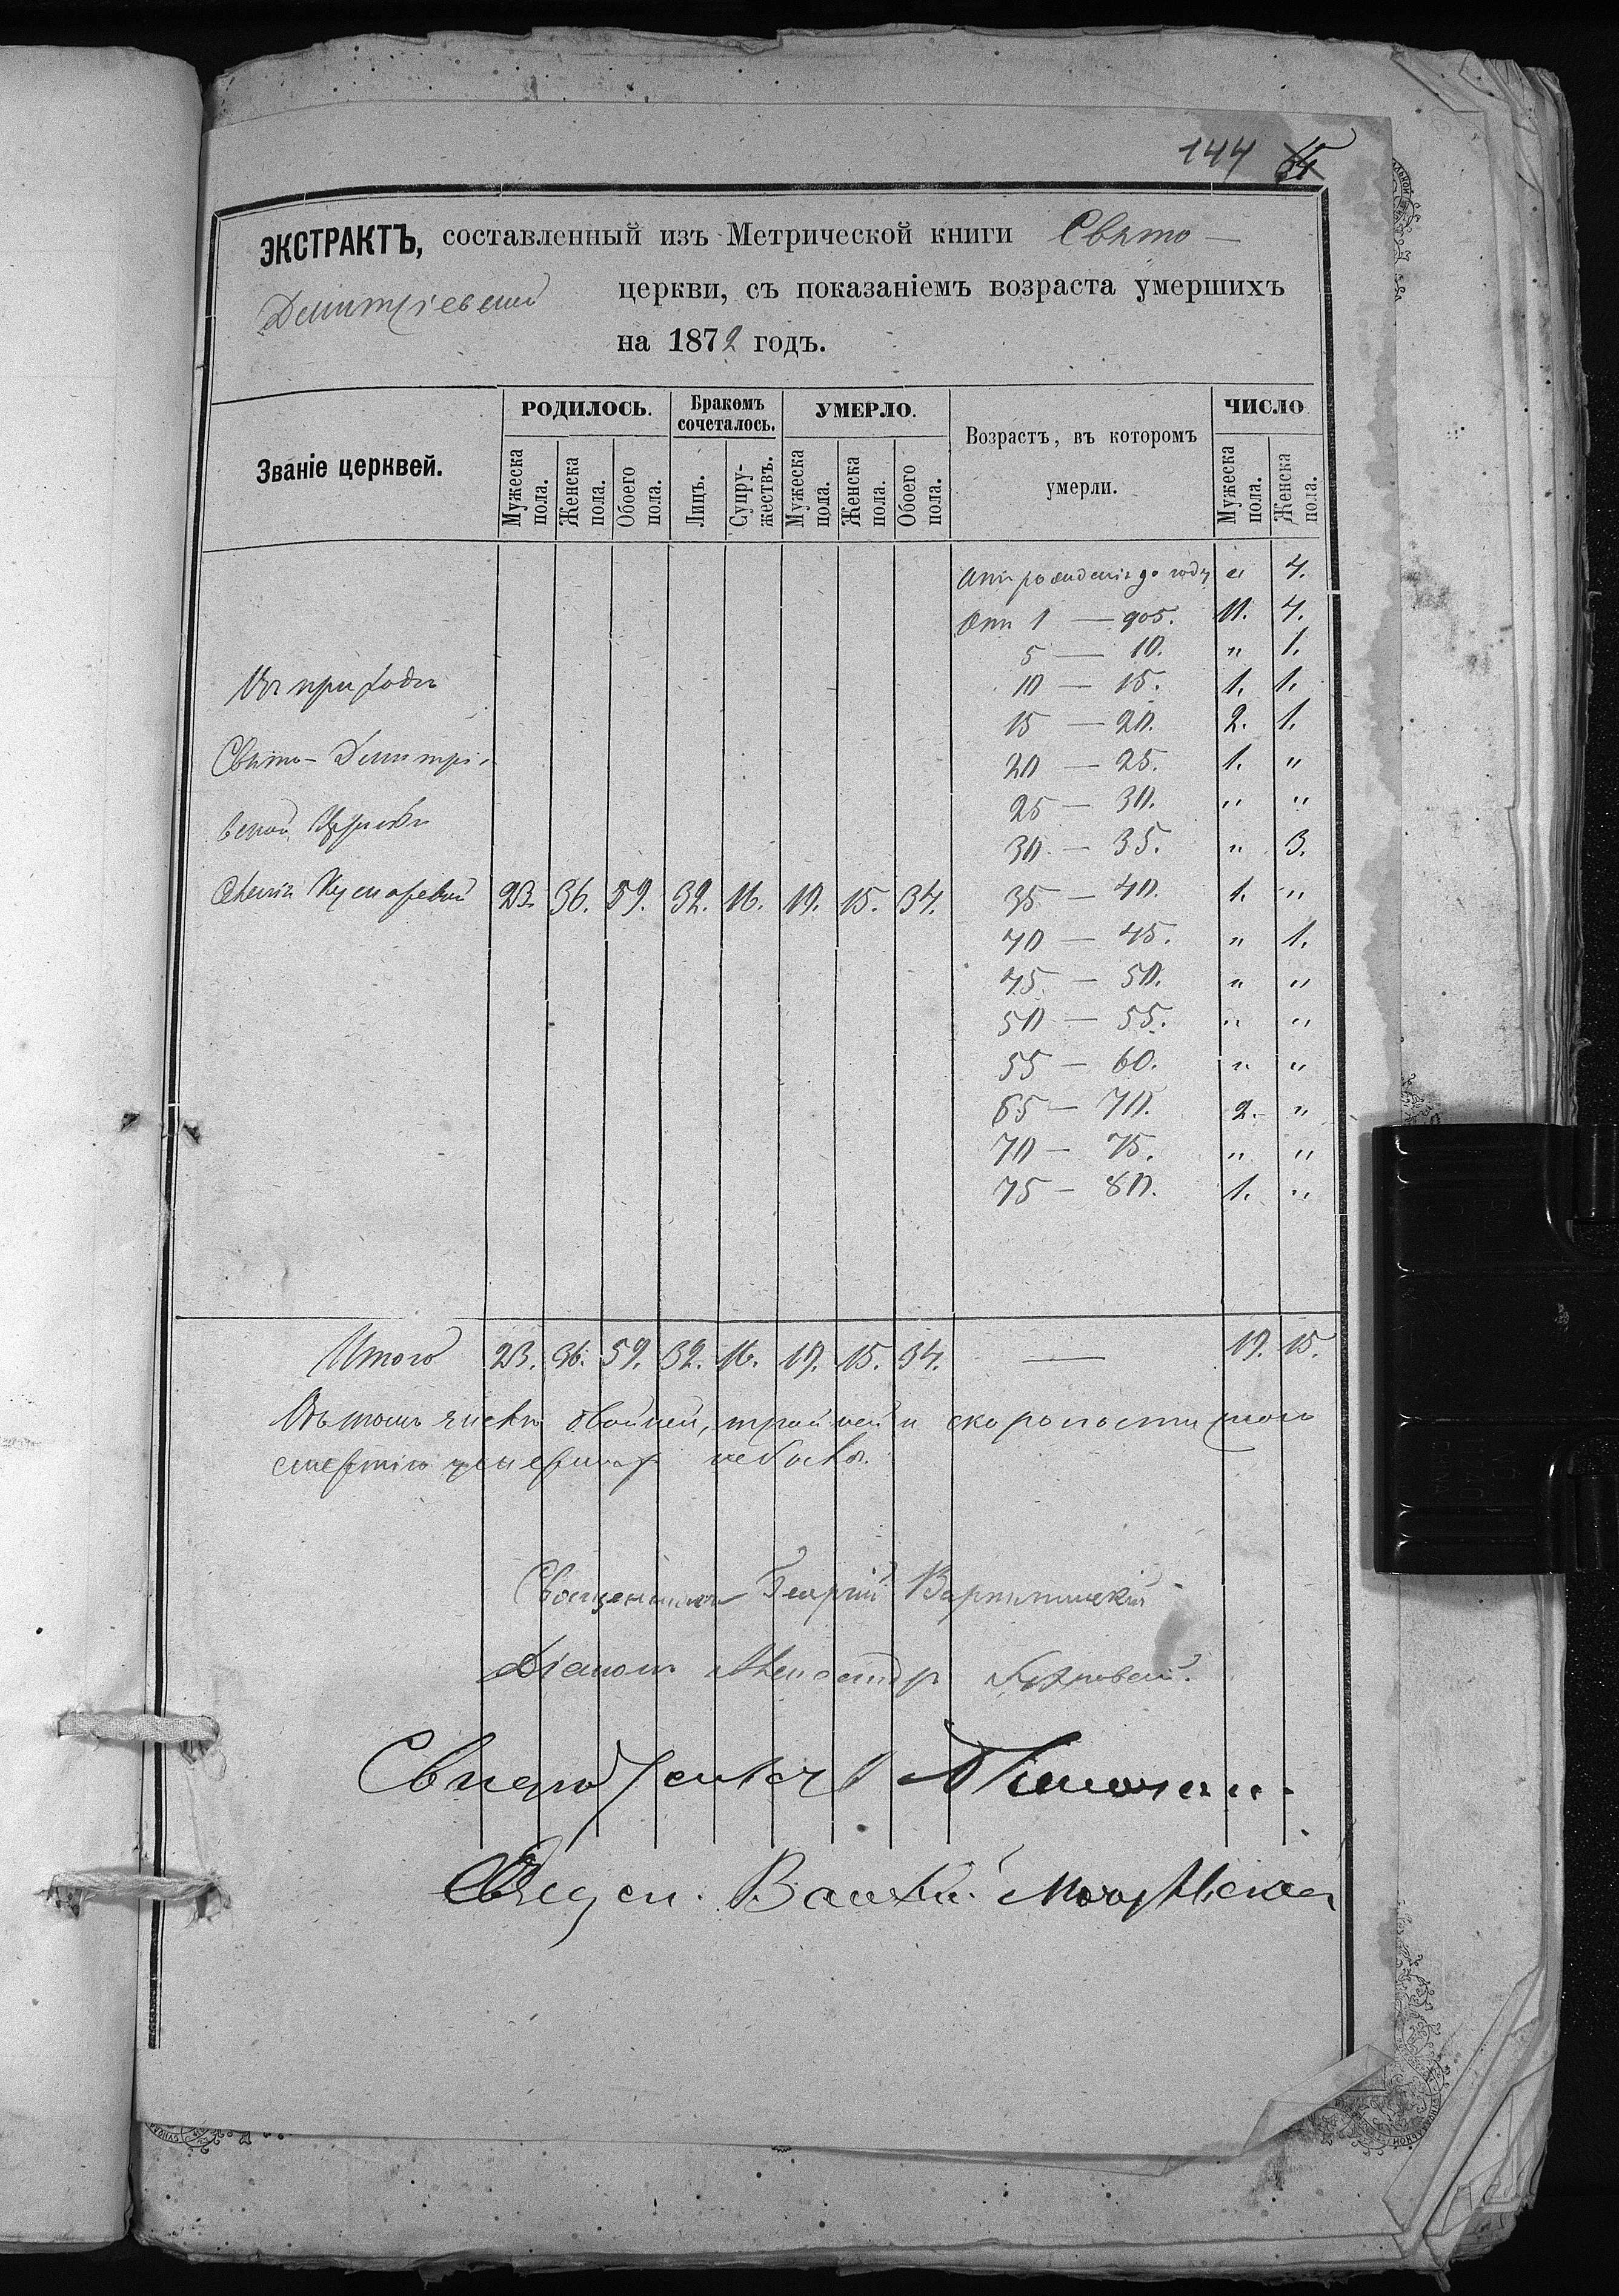 144
ЭКСТРАКТЪ, составленный изъ Метрической книги Свято-
Димитріевской церкви, съ показаніемъ возраста умершихъ
на 1872 годъ.
Званіе церквей.
РОДИЛОСЬ.
Бракомъ сочеталось.
УМЕРЛО.
Возрастъ, въ которомъ умерли.
ЧИСЛО
Мужеска пола.
Женска пола.
Обоего пола.
Лицъ.
Супружествъ.
Мужеска пола.
Женска пола.
Обоего пола.
Мужеска пола.
Женска пола.
Отъ рожденія до году " 4.
Отъ 1 — до 5. 11. 4.
5 — 10. " 1.
10 — 15. 1. 1.
15 — 20. 2. 1.
20 — 25. 1. "
25 — 30. " "
30 — 35. " 3.
35 — 40. 1. "
40 — 45. " 1.
45 — 50. " "
50 — 55. " "
55 — 60. " "
65 — 70. 2. "
70 — 75. " "
75 — 80. 1. "
Въ приходѣ
Свято-Димитрі-
вской Церкви
23. 36. 59. 32. 16. 19. 15. 34.
Итого 23. 36. 59. 32. 16. 19. 15. 34. — 19. 15.
Въ томъ числѣ двойней, тройней и скоропостижною
смертію умершихъ небыло.
Священникъ Георгій
Діаконъ Александръ